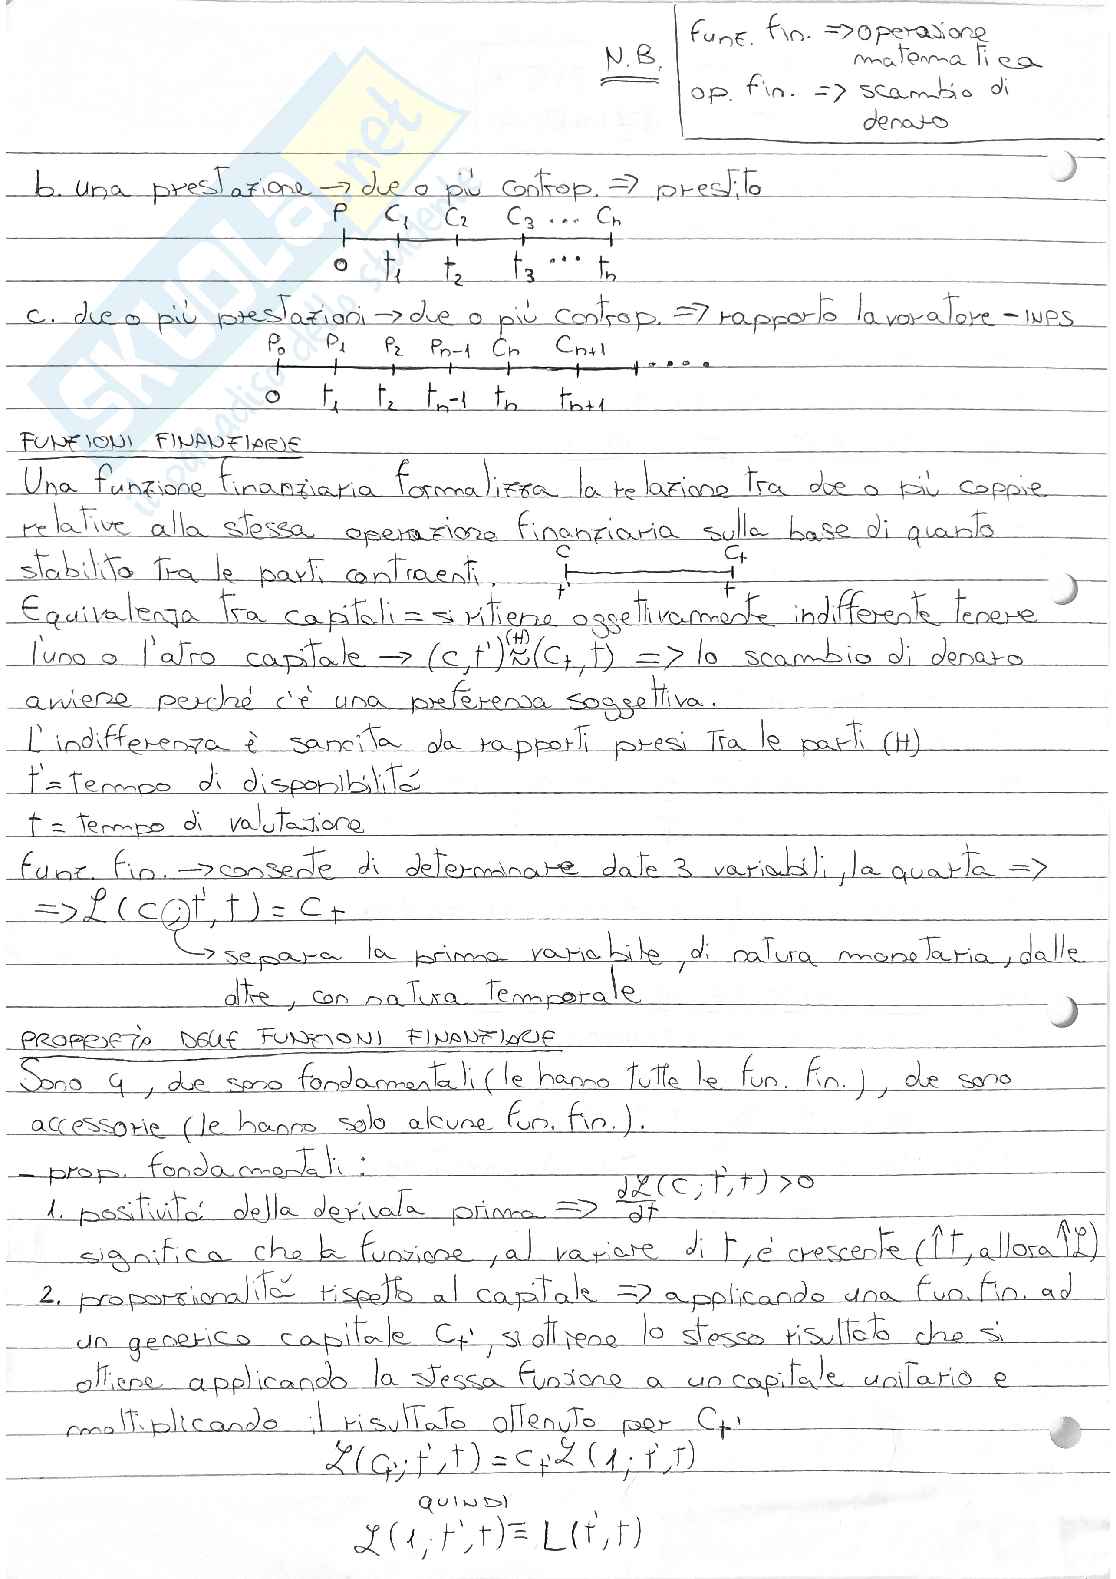 N.B.
funz. fin. => operazione
matematica
op. fin. => scambio di
denaro
b. una prestazione → due o più controp. => prestito
P C₁ C₂ C₃ ... Cn
0 t₁ t₂ t₃ ... tn
c. due o più prestazioni → due o più controp. => rapporto lavoratore - INPS
P₀ P₁ P₂ Pn-1 Cn Cn+1
0 t₁ t₂ tn-1 tn tn+1 ....
FUNZIONI FINANZIARIE
Una funzione finanziaria formalizza la relazione tra due o più coppie
relative alla stessa operazione finanziaria sulla base di quanto
stabilito tra le parti contraenti.
C Ct
t' t
Equivalenza tra capitali = si ritiene oggettivamente indifferente tenere
l'uno o l'atro capitale → (C,t') (H) ≈ (Ct,t) => lo scambio di denaro
avviene perché c'è una preferenza soggettiva.
L'indifferenza è sancita da rapporti presi tra le parti (H)
t' = tempo di disponibilità
t = tempo di valutazione
funz. fin. → consente di determinare date 3 variabili, la quarta =>
=> ℒ(C; t', t) = Ct
→ separa la prima variabile, di natura monetaria, dalle
altre, con natura temporale
PROPRIETÀ DELLE FUNZIONI FINANZIARIE
Sono 4, due sono fondamentali (le hanno tutte le fun. fin.), due sono
accessorie (le hanno solo alcune fun. fin.).
- prop. fondamentali:
1. positività della derivata prima => dℒ(C; t', t)/dt > 0
significa che la funzione, al variare di t, è crescente (↑t, allora ↑ℒ)
2. proporzionalità rispetto al capitale => applicando una fun. fin. ad
un generico capitale Ct', si ottiene lo stesso risultato che si
ottiene applicando la stessa funzione a un capitale unitario e
moltiplicando il risultato ottenuto per Ct'
ℒ(Ct'; t', t) = Ct' ℒ(1; t', t)
QUINDI
ℒ(1; t', t) ≡ L(t', t)
SKUOLA.net
il paradiso dello studente